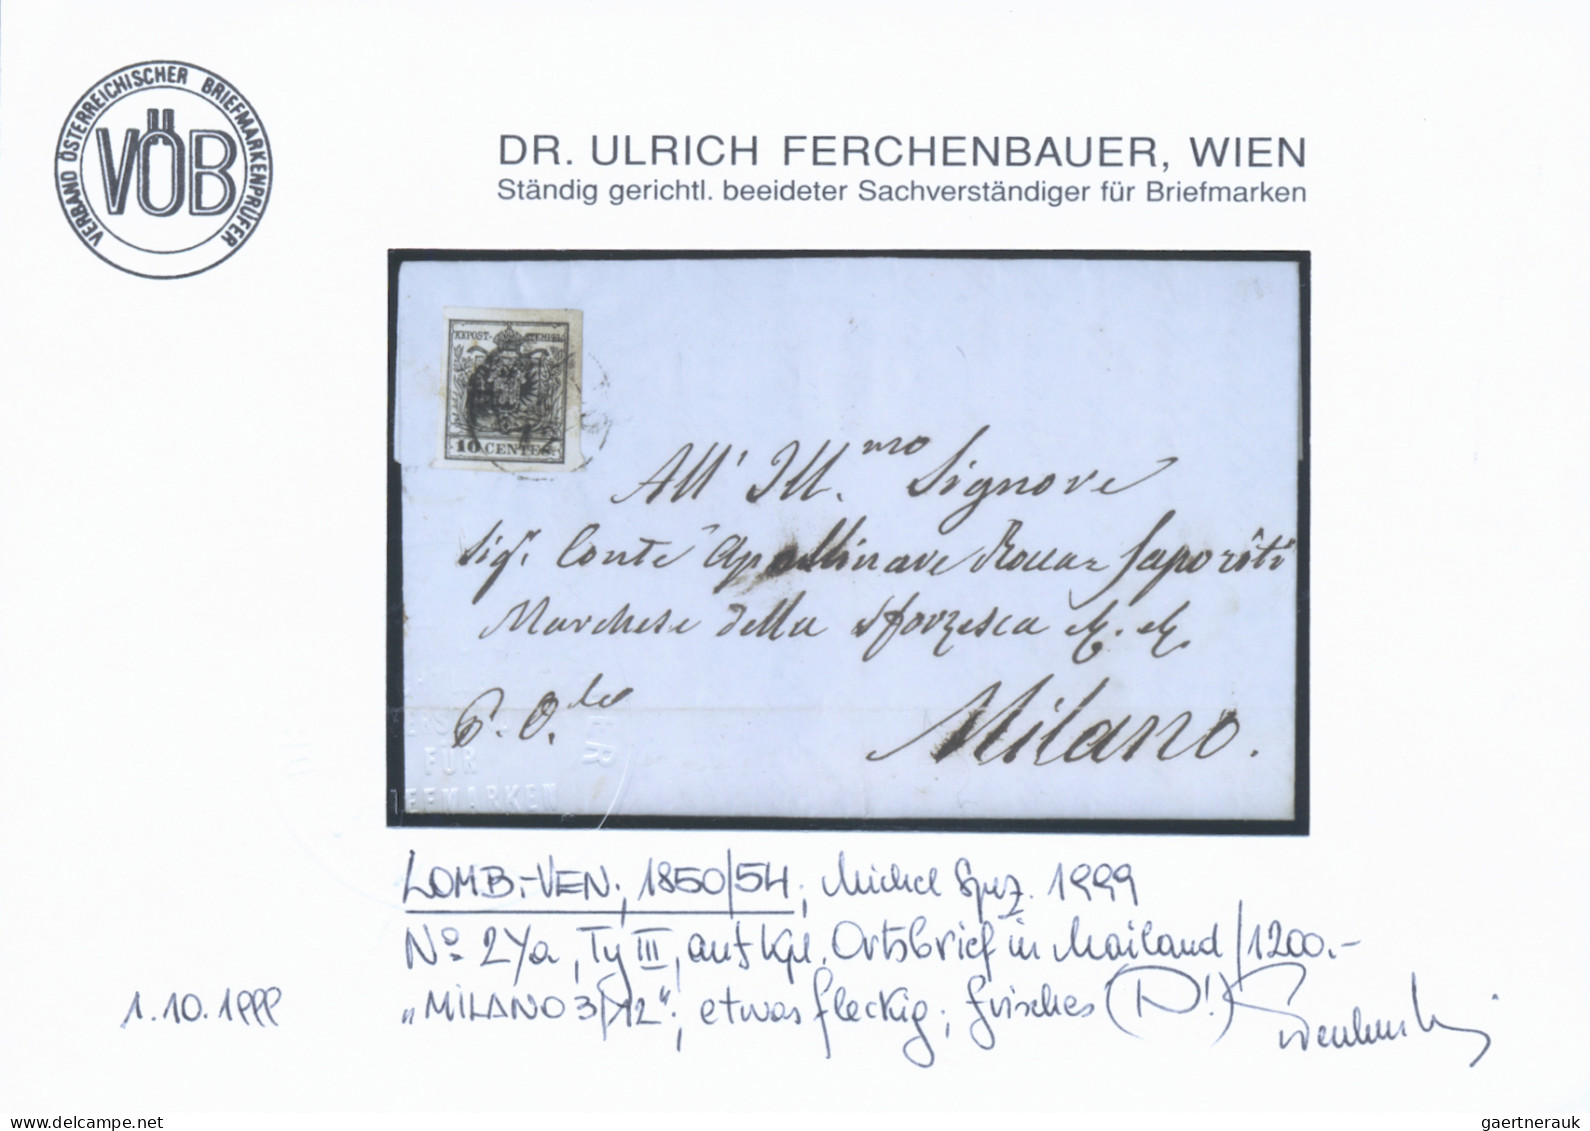 VERBAND ÖSTERREICHISCHER BRIEFMARKENPRÜFER
VÖB
DR. ULRICH FERCHENBAUER, WIEN
Ständig gerichtl. beeideter Sachverständiger für Briefmarken
KKPOST-STEMPEL
10 CENTES.
All' Ill.mo Signore
Sig.r Conte Apollinare Rocca Saporiti
Marchese della Sforzesca
Milano.
FÜR
LOMB.-VEN., 1850/54, Michel Spez. 1999
No 2Ya, Ty III, auf kpl. Ortsbrief in Mailand/1200.-
1.10.1999 "MILANO 3/12"; etwas fleckig; frisches
delcampe.net
gaertnerauk